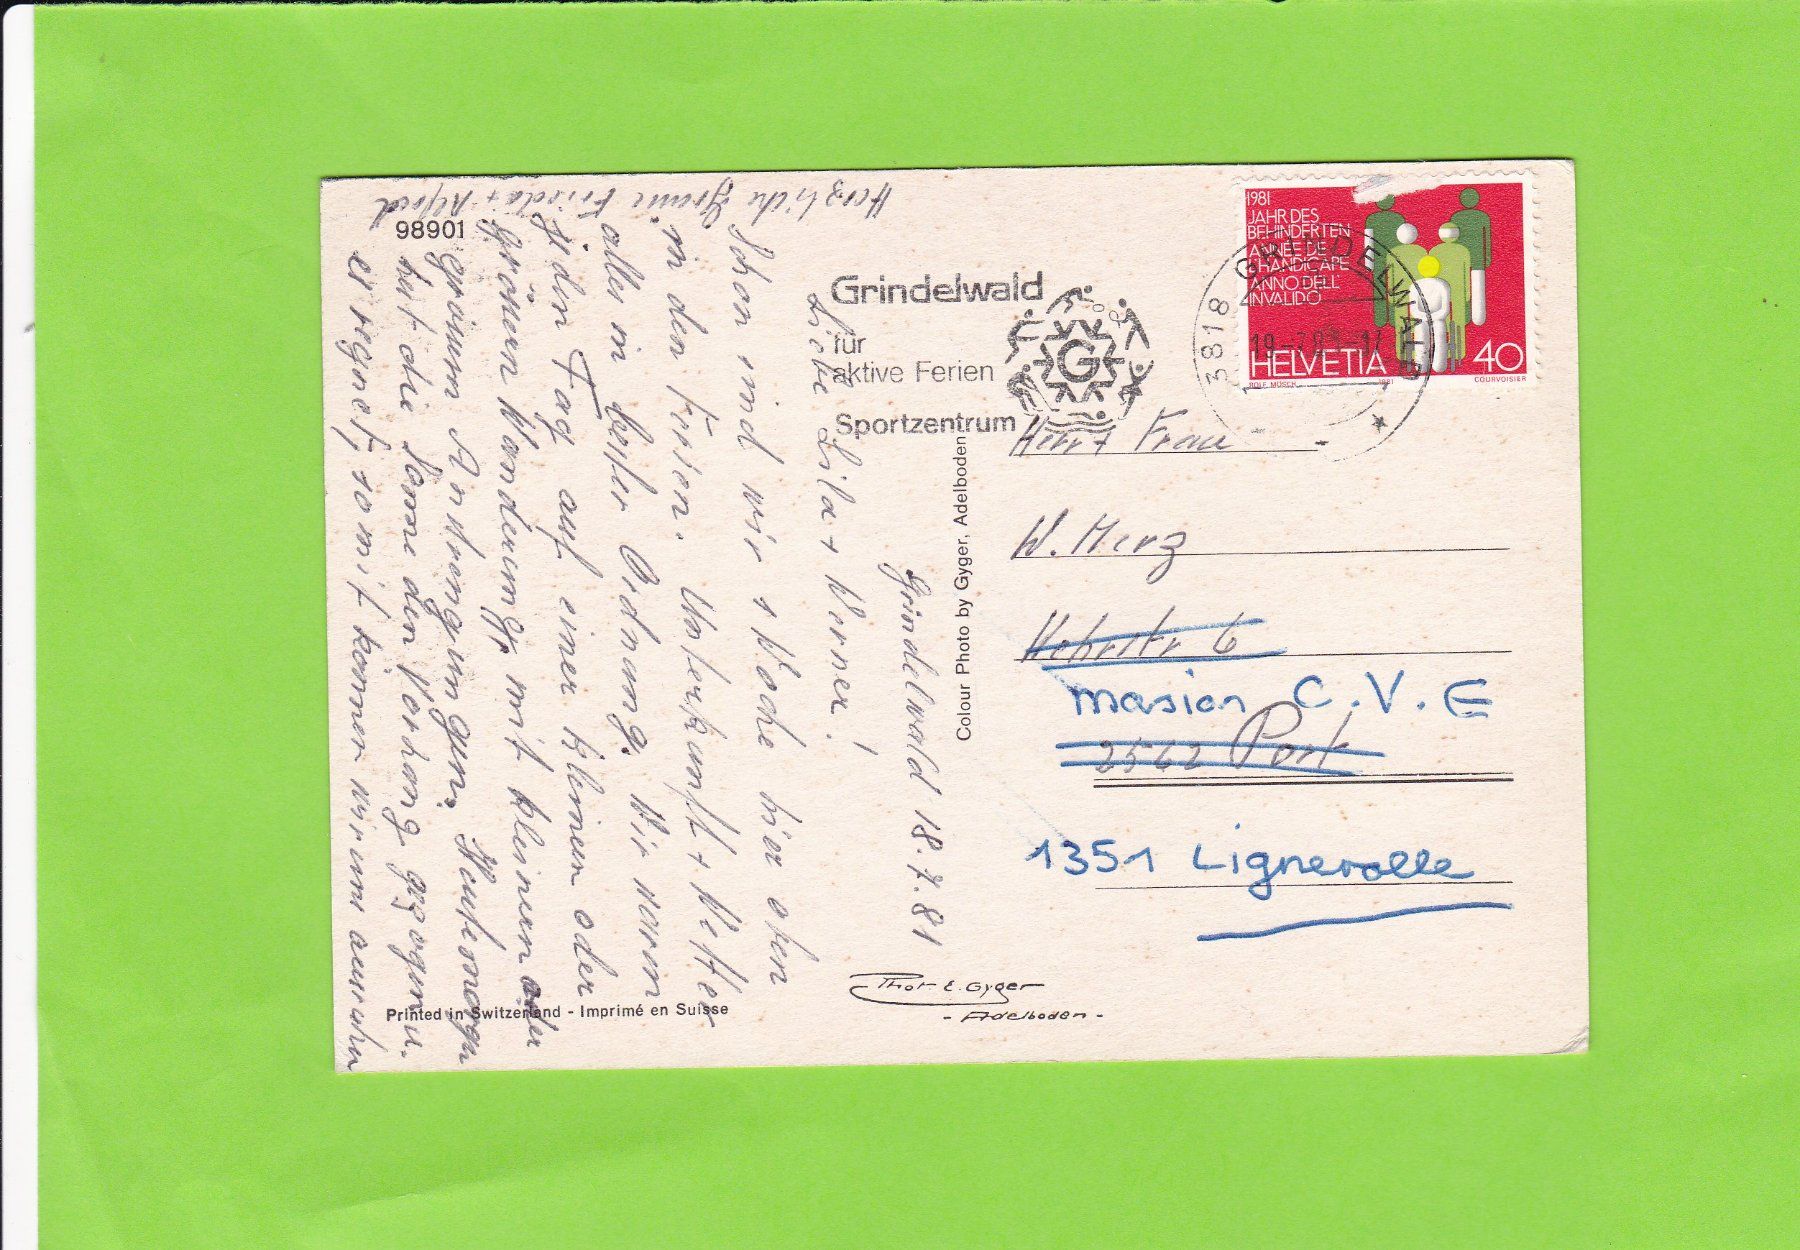 98901
Grindelwald 18.7.81
Liebe Lila + Werner!
Schon sind wir 1 Woche hier oben
in den Ferien. Unterkunft + Wetter
alles in bester Ordnung. Wir waren
jeden Tag auf einer kleinen oder
grössern Wanderung mit kleinen oder
grossen Anstrengungen. Heutemorgen
hat die Sonne den Vorhang gezogen.
es regnet, somit können wir uns ausruhn
Herzliche Grüsse Frieda + Alfred
Grindelwald
für
aktive Ferien
Sportzentrum
G
3818 GRINDELWALD
1981
JAHR DES
BEHINDERTEN
ANNÉE DE
L'HANDICAPÉ
ANNO DELL'
INVALIDO
HELVETIA 40
ROLF MÜSCH 1981 COURVOISIER
Herr + Frau
W. Merz
masion C.V.E
2562 Port
1351 Lignerolle
Colour Photo by Gyger, Adelboden
Phot E. Gyger
- Adelboden -
Printed in Switzerland - Imprimé en Suisse